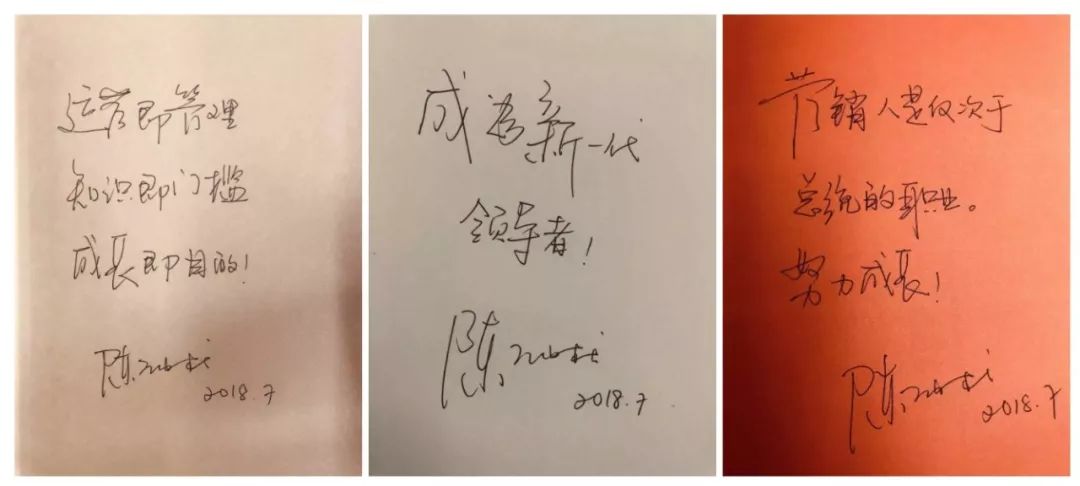 运营即管理
知识即门槛
成长即目的!
陈
2018.7
成为新一代
领导者!
陈
2018.7
营销人是仅次于
总统的职业。
努力成长!
陈
2018.7